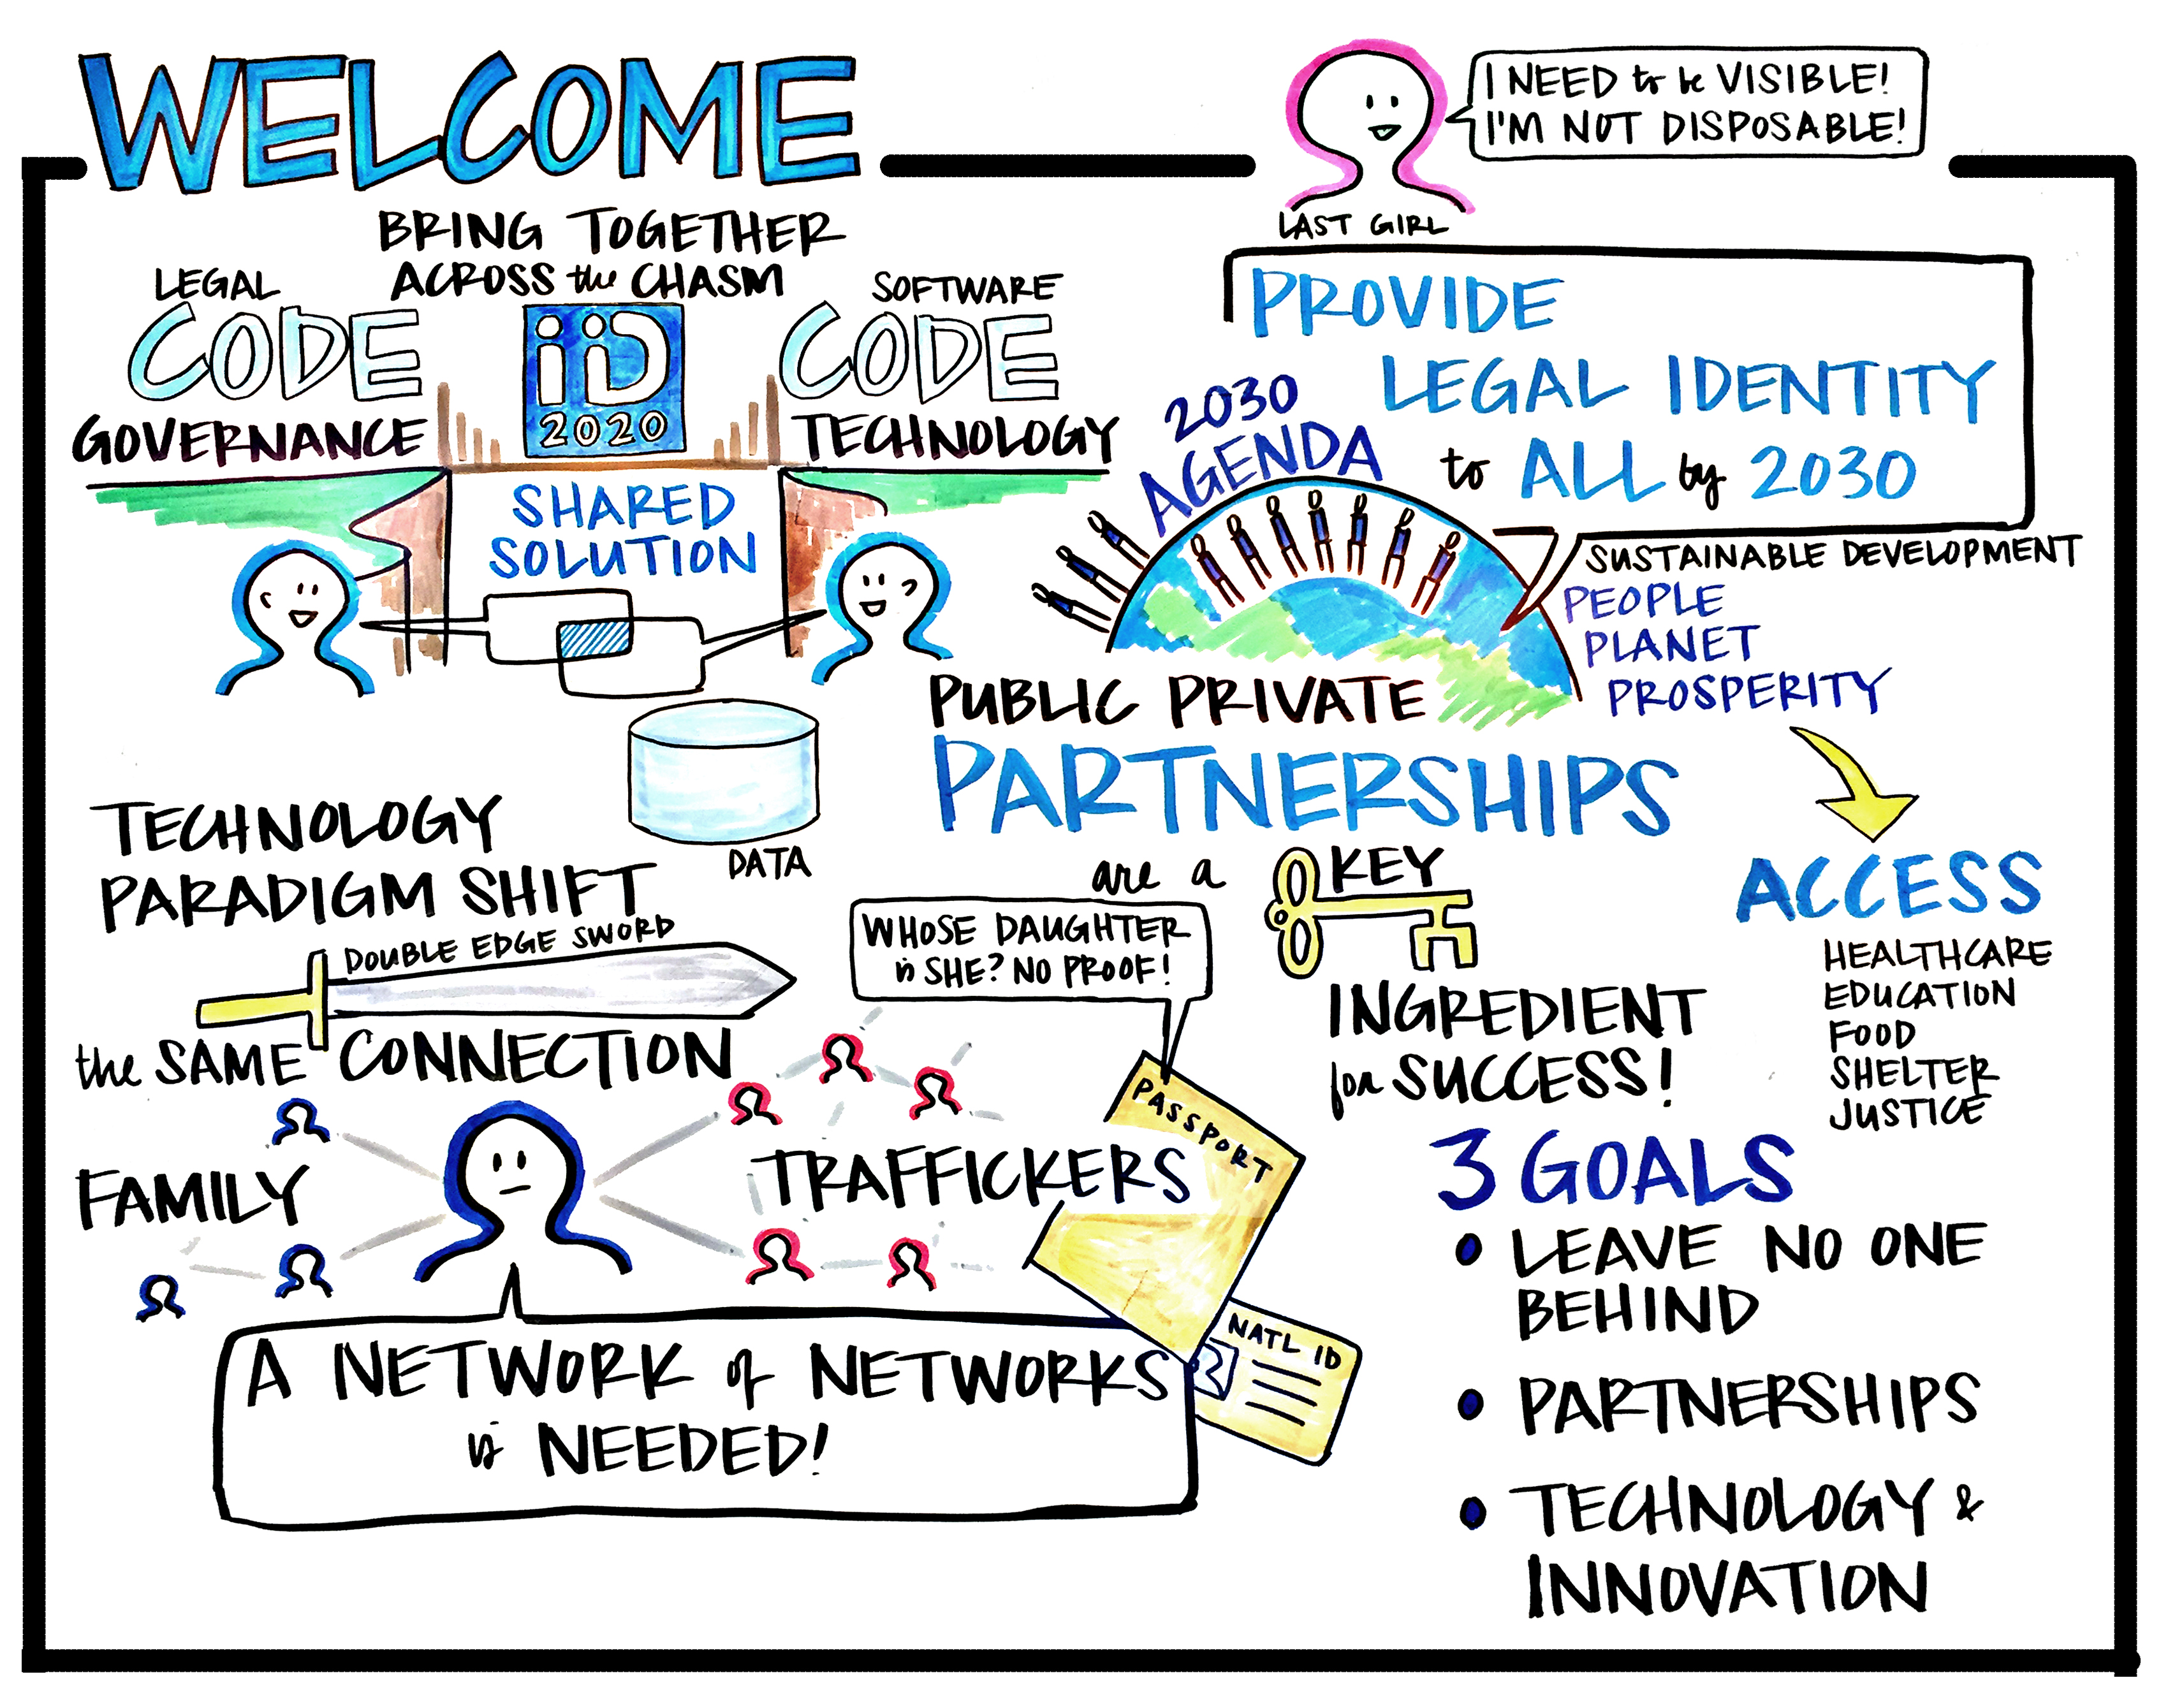 WELCOME
I NEED to be VISIBLE!
I'M NOT DISPOSABLE!
LAST GIRL
BRING TOGETHER
ACROSS the CHASM
LEGAL
CODE
GOVERNANCE
iiD
2020
SOFTWARE
CODE
TECHNOLOGY
SHARED
SOLUTION
DATA
PROVIDE
LEGAL IDENTITY
to ALL by 2030
2030
AGENDA
SUSTAINABLE DEVELOPMENT
PEOPLE
PLANET
PROSPERITY
PUBLIC PRIVATE
PARTNERSHIPS
are a KEY
INGREDIENT
for SUCCESS!
ACCESS
HEALTHCARE
EDUCATION
FOOD
SHELTER
JUSTICE
TECHNOLOGY
PARADIGM SHIFT
DOUBLE EDGE SWORD
the SAME CONNECTION
FAMILY
TRAFFICKERS
WHOSE DAUGHTER
is SHE? NO PROOF!
PASSPORT
NATL ID
A NETWORK of NETWORKS
is NEEDED!
3 GOALS
• LEAVE NO ONE
BEHIND
• PARTNERSHIPS
• TECHNOLOGY &
INNOVATION